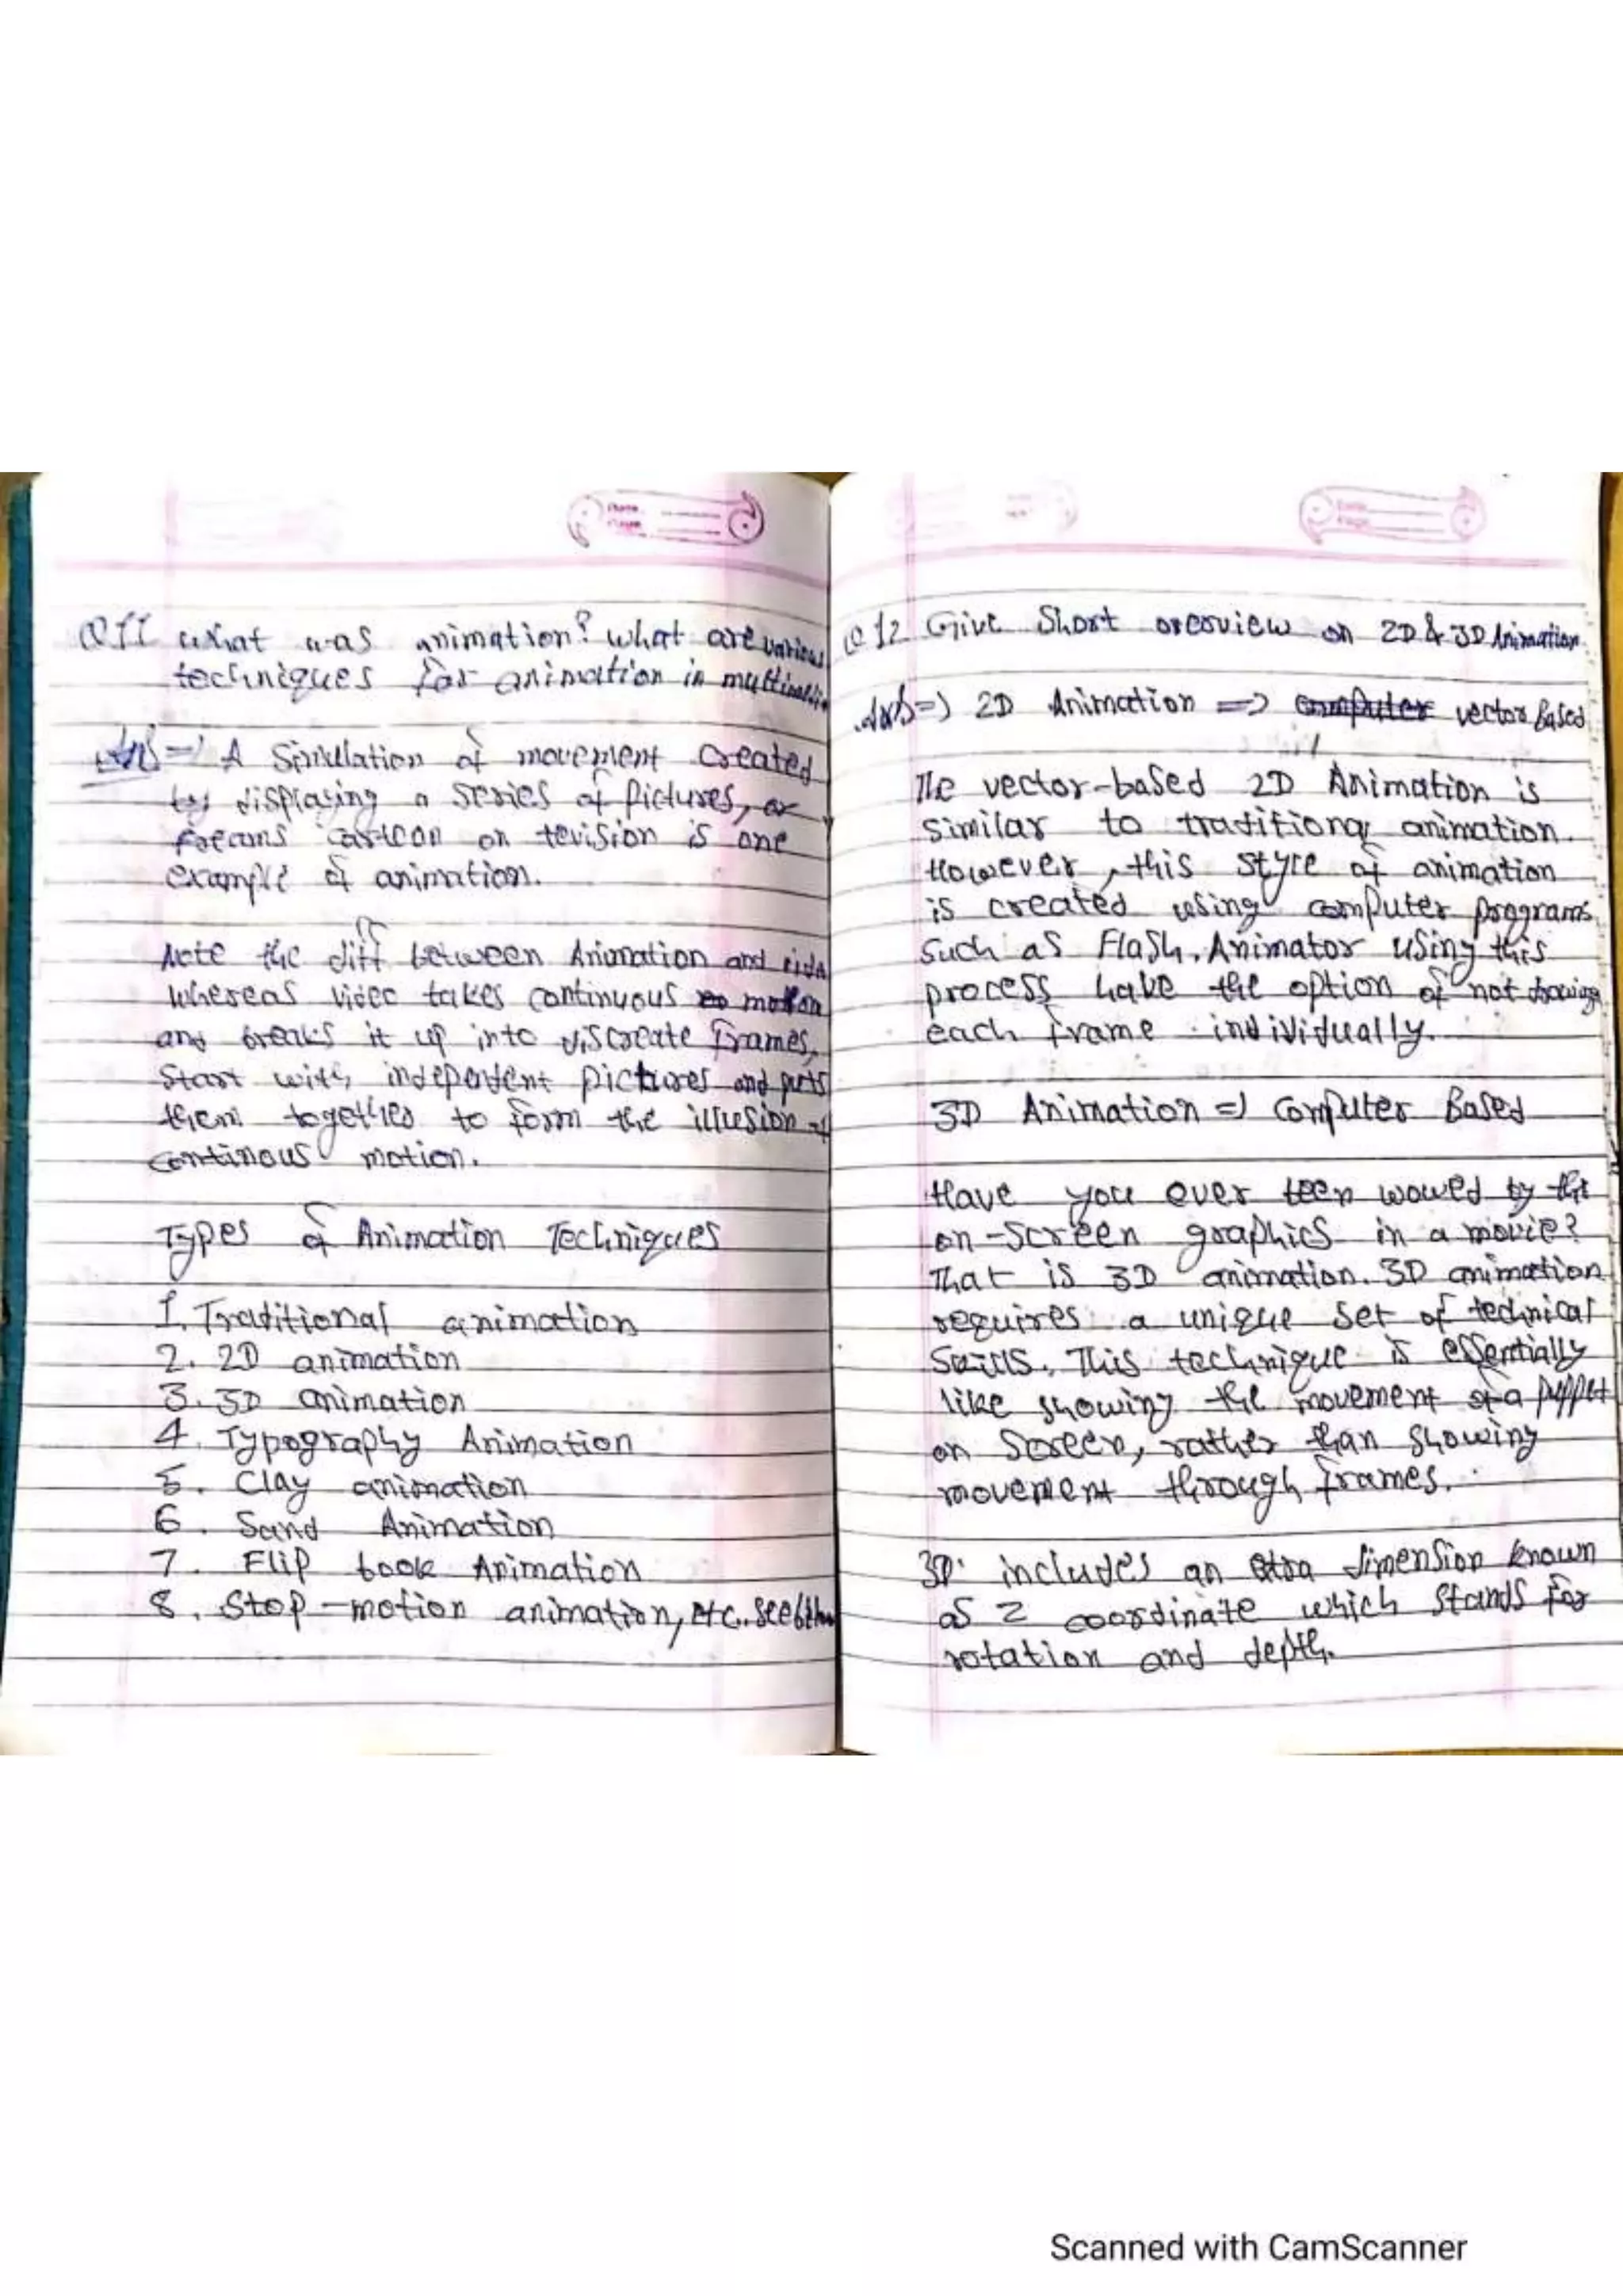 Q11 what was animation? what are various
techniques for animation in multimedia.
Ans => A Simulation of movement Created
by displaying a series of Pictures, or
freams cartoon on tevision is one
example of animation.
Note the diff between Animation and vido
whereas video takes continuous motion
and breaks it up into discreate frames,
Start with indepondent pictures and puts
them together to form the illusion of
continous motion.
Types of Animation Techniques
1. Traditional animation
2. 2D animation
3. 3D animation
4. Typography Animation
5. Clay animation
6. Sand Animation
7. Flip book Animation
8. Stop-motion animation, etc..
Q12 Give Short overview on 2D & 3D Animation
Ans => 2D Animation => computer vector Based
The vector-based 2D Animation is
similar to traditional animation.
However, this style of animation
is created using computer programs
Such as Flash. Animator using this
process have the option of not drawing
each frame individually.
3D Animation => Computer Based
Have you ever been wowed by the
on-screen graphics in a movie?
That is 3D animation. 3D animation
requires a unique set of technical
Skills. This technique is essentially
like showing the movement of a puppet
on Screen, rather than showing
movement through frames.
3D includes an extra dimension known
as Z coordinate which Stands for
rotation and depth.
Scanned with CamScanner